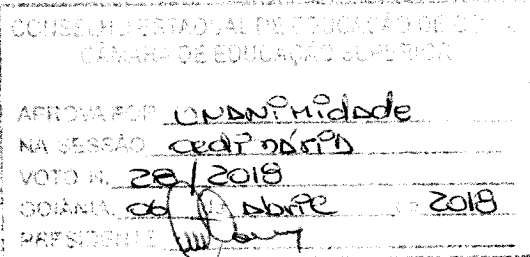 CONSELHO ESTADUAL DE EDUCAÇÃO DE GO
CÂMARA DE EDUCAÇÃO SUPERIOR
APROVA POR UNANIMIDADE
NA SESSÃO ORDINÁRIA
VOTO N. 28/2018
GOIÂNIA, 06 ABRIL 2018
PRESIDENTE